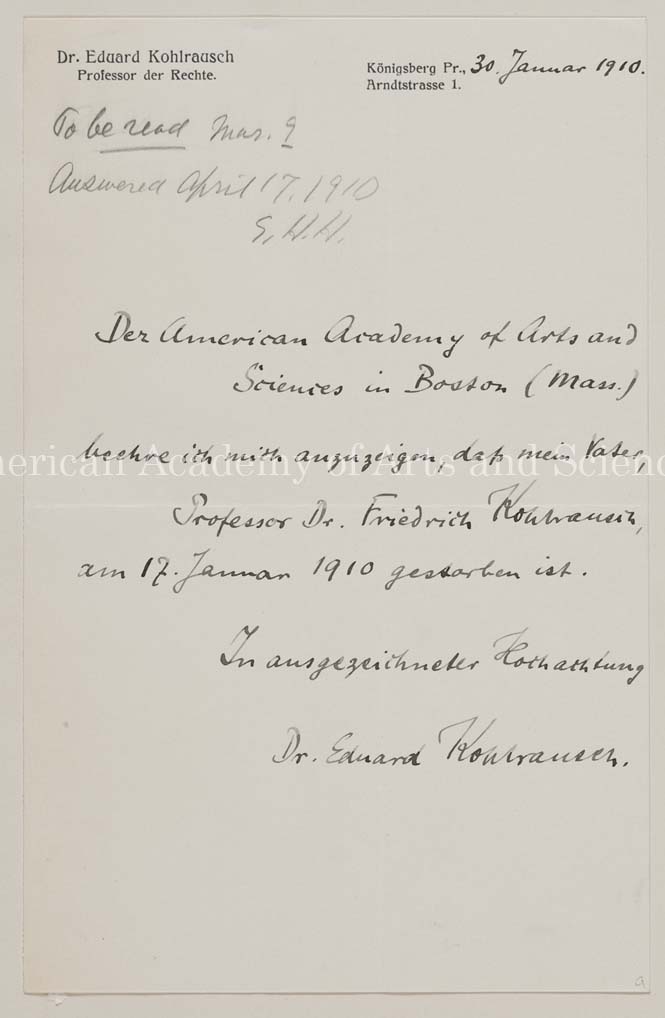 Dr. Eduard Kohlrausch
Professor der Rechte.
Königsberg Pr., 30. Januar 1910.
Arndtstrasse 1.
To be read Mar. 9
Answered April 17. 1910
E. H. H.
Der American Academy of Arts and
Sciences in Boston (Mass.)
beehre ich mich anzuzeigen, daß mein Vater,
American Academy of Arts and Sciences
Professor Dr. Friedrich Kohlrausch,
am 17. Januar 1910 gestorben ist.
In ausgezeichneter Hochachtung
Dr. Eduard Kohlrausch.
a